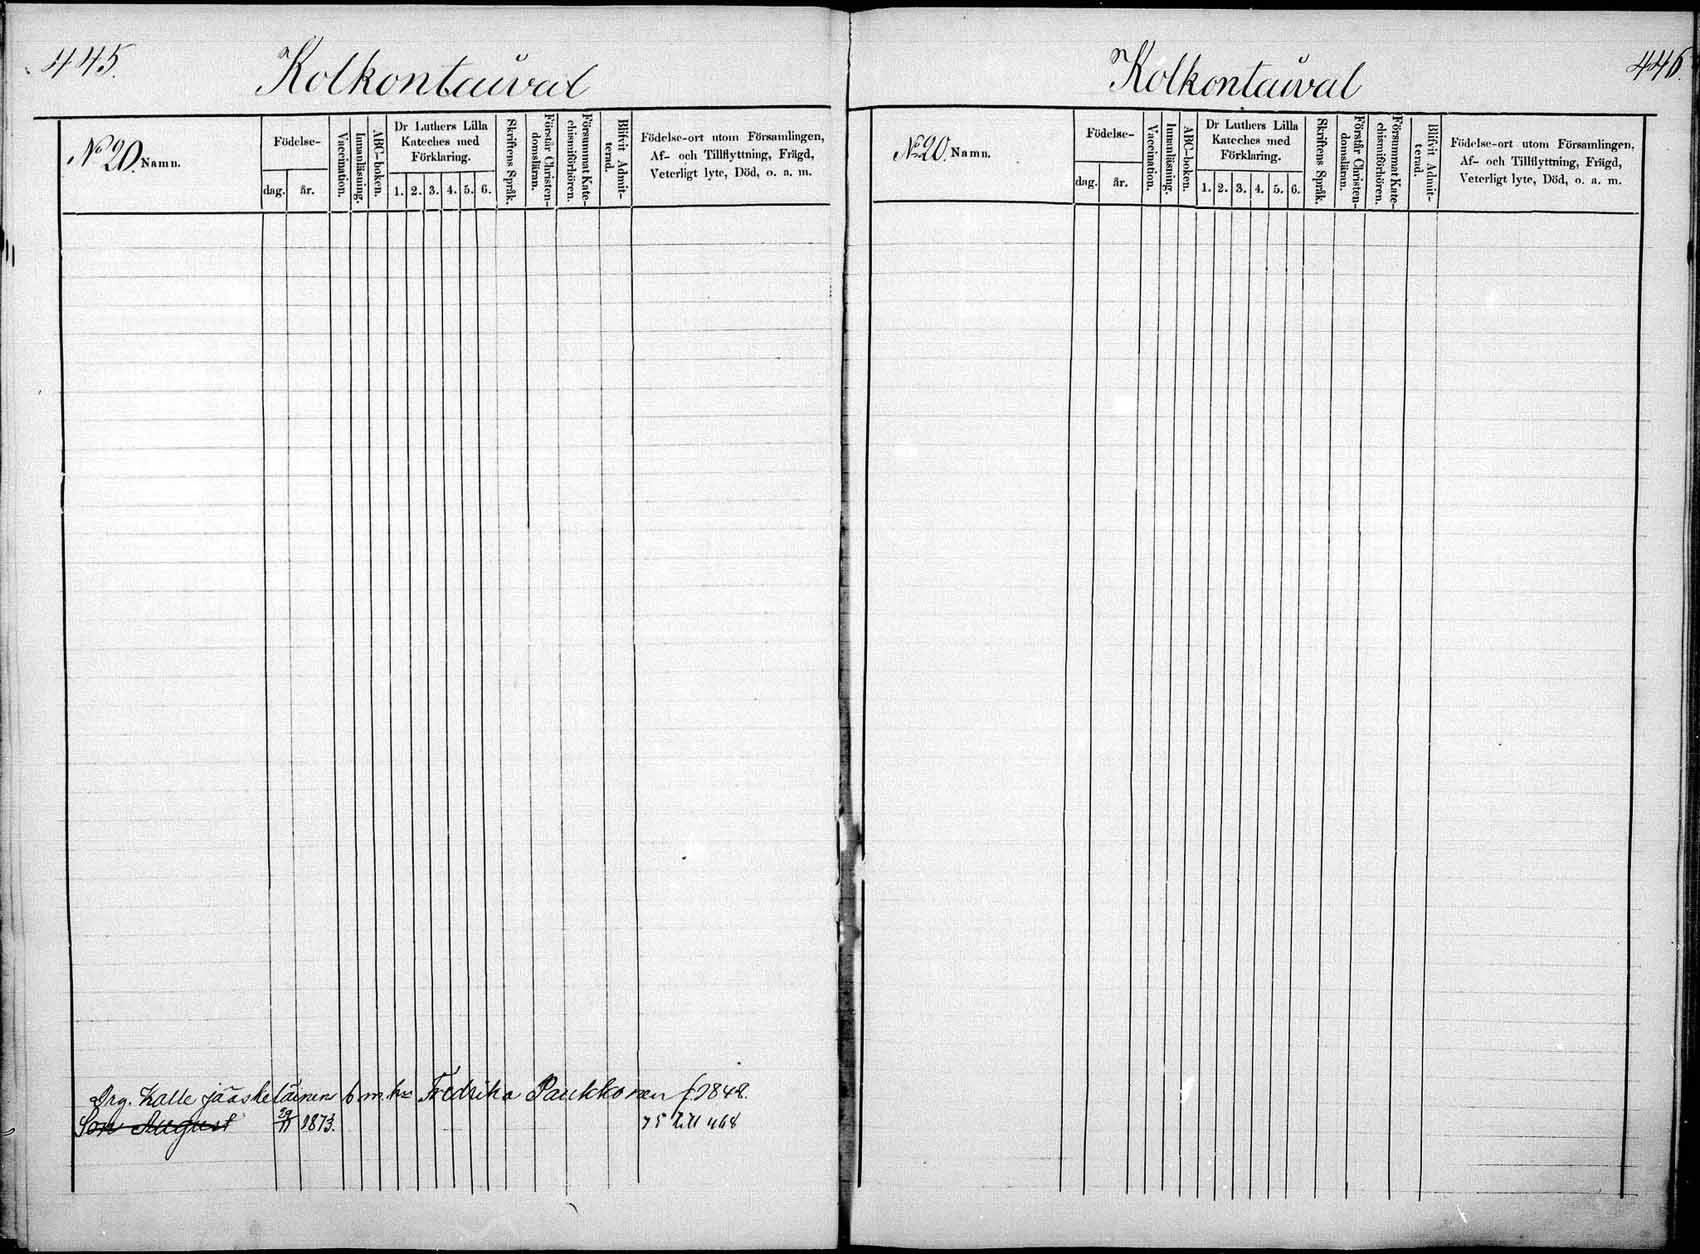 445.
Kolkontaival
No 20. Namn.
Födelse-
dag. år.
Vaccination.
Innanläsning.
ABC-boken.
Dr Luthers Lilla
Kateches med
Förklaring.
1. 2. 3. 4. 5. 6.
Skriftens Språk.
Förstår Christen-
domsläran.
Försummat Kate-
chismiförhören.
Blifvit Admit-
terad.
Födelse-ort utom Församlingen,
Af- och Tillflyttning, Frägd,
Veterligt lyte, Död, o. a. m.
Drg. Kalle Jääskeläinens b m. h:u Fredrika Paukkonen f 1848.
Son August 29/11 1873. 75 till 468
446.
Kolkontaival
No 20. Namn.
Födelse-
dag. år.
Vaccination.
Innanläsning.
ABC-boken.
Dr Luthers Lilla
Kateches med
Förklaring.
1. 2. 3. 4. 5. 6.
Skriftens Språk.
Förstår Christen-
domsläran.
Försummat Kate-
chismiförhören.
Blifvit Admit-
terad.
Födelse-ort utom Församlingen,
Af- och Tillflyttning, Frägd,
Veterligt lyte, Död, o. a. m.